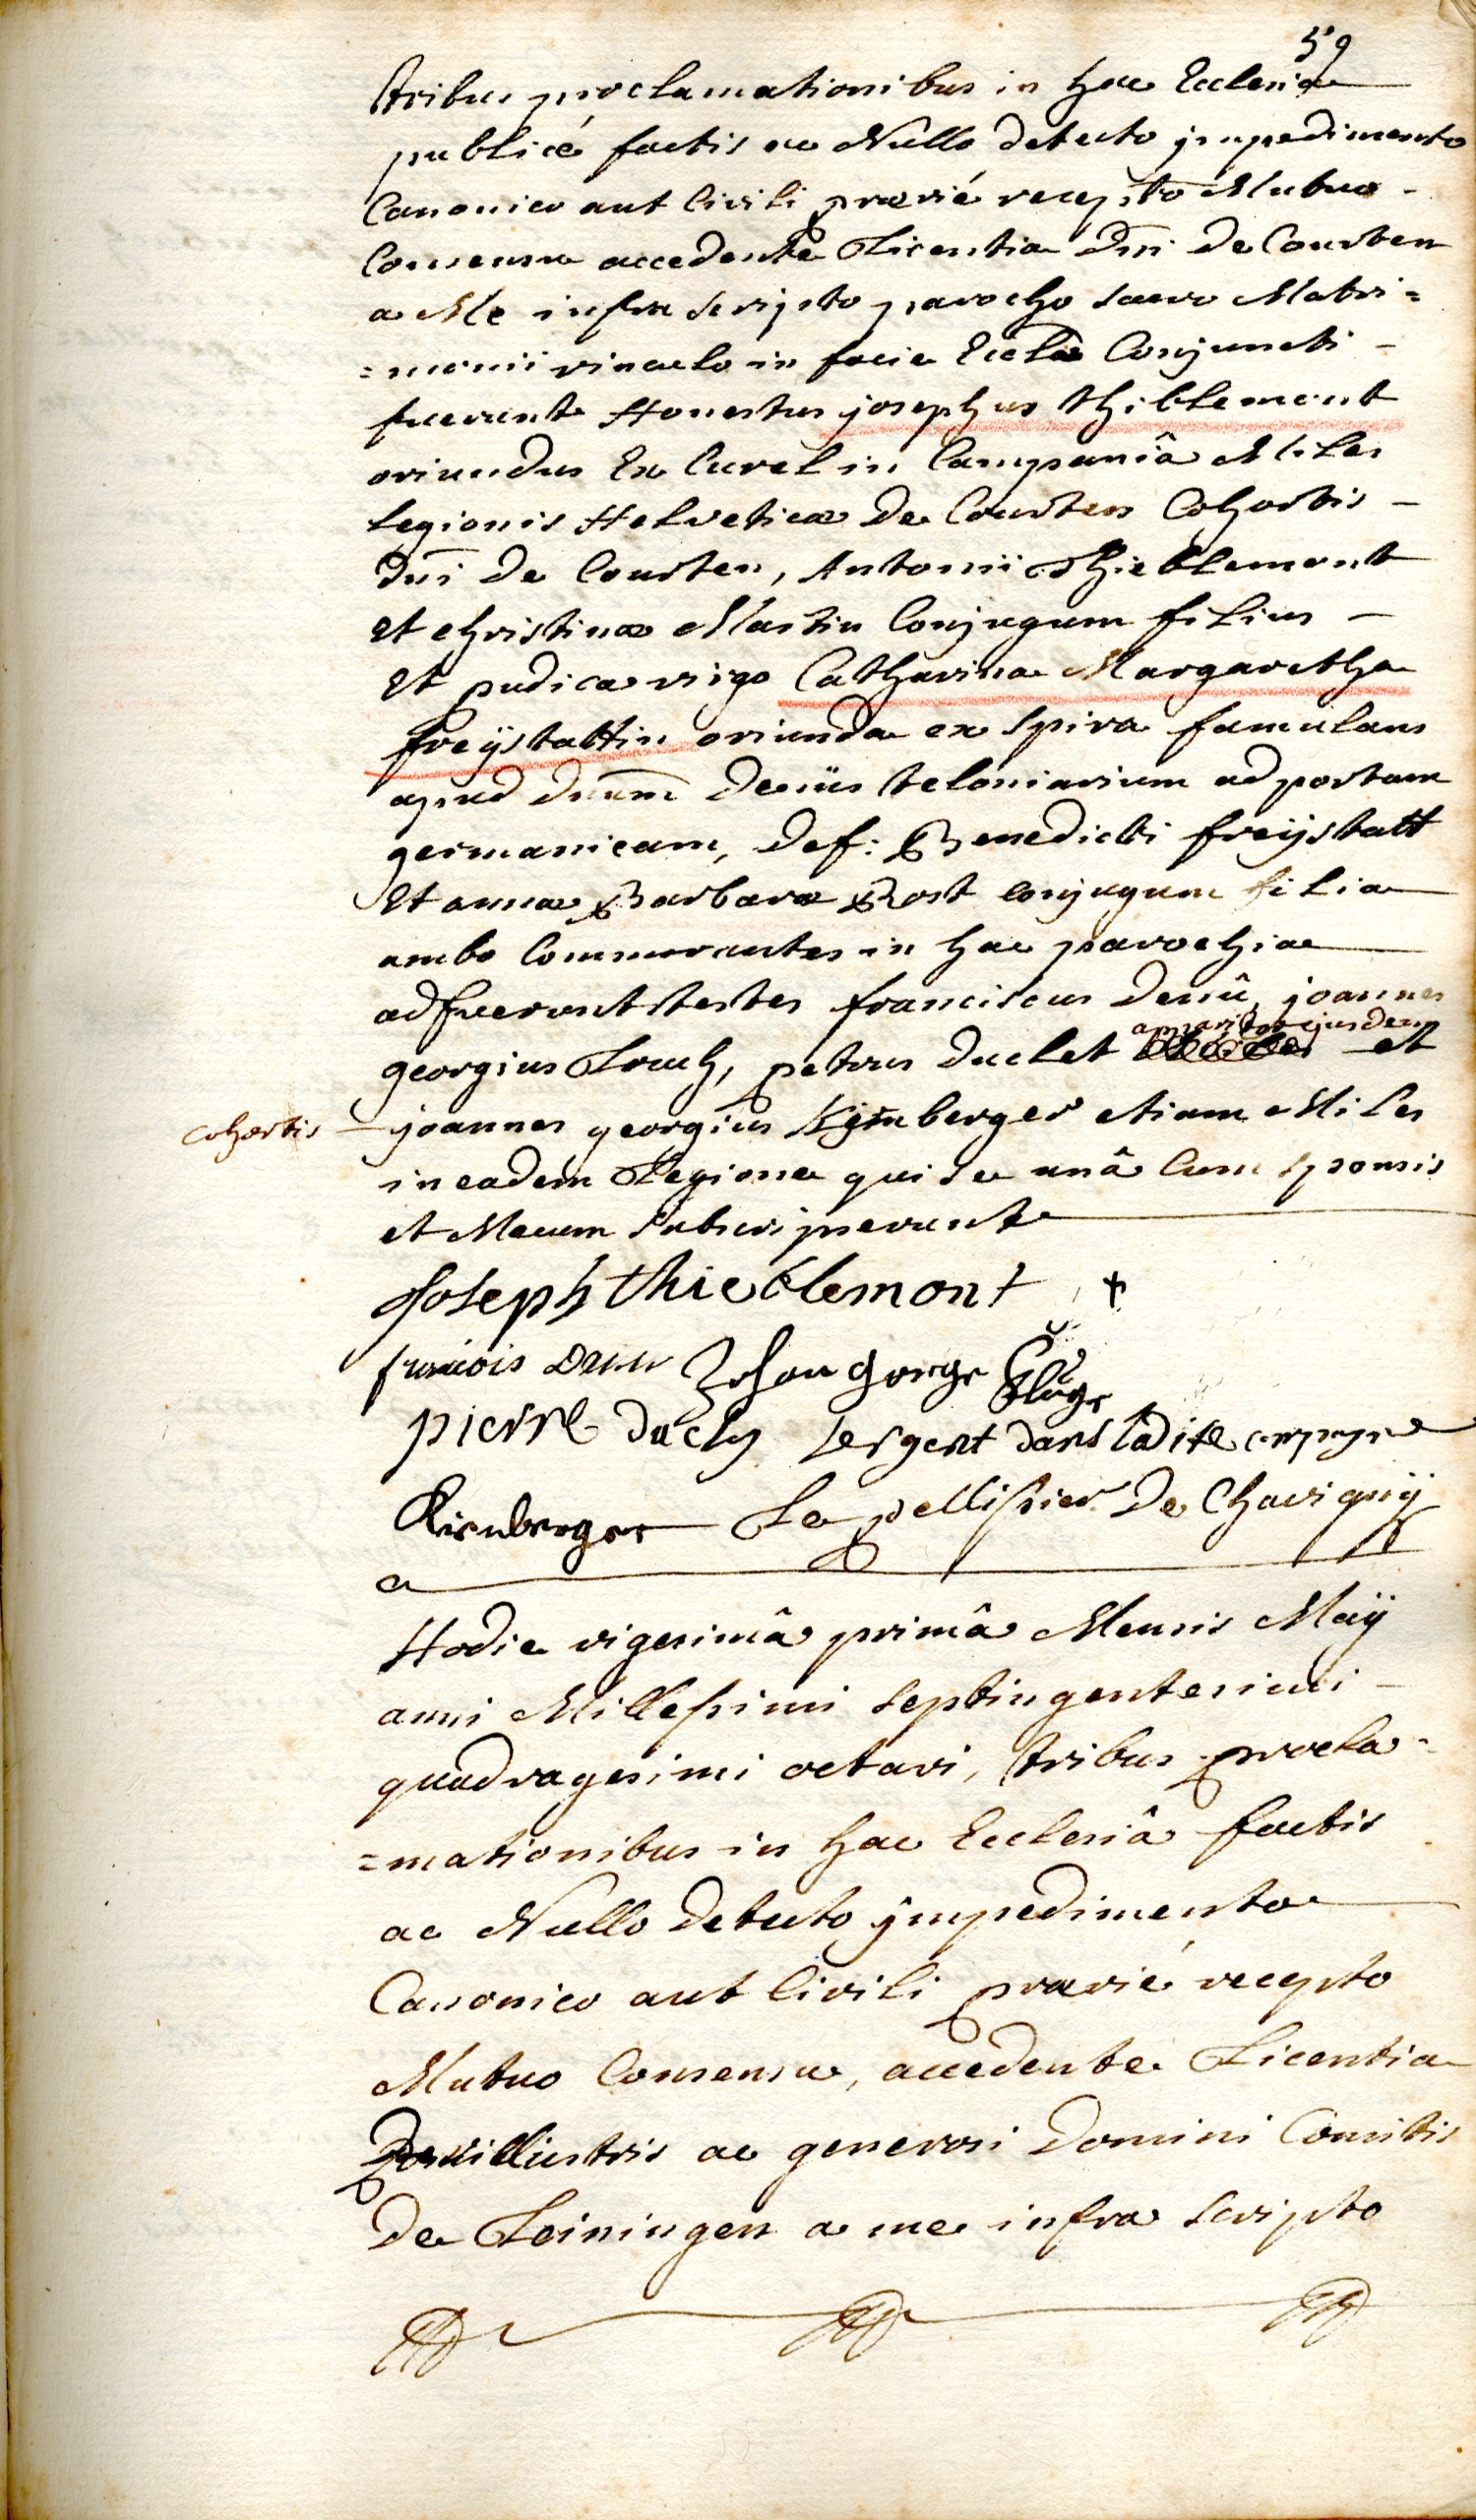 59
tribus proclamationibus in hac Ecclesia
publicé factis ac Nullo detecto jmpedimento
Canonico aut Civili prævié recepto Mutuo -
Consensu accedente Licentia Dni De Courten
a Me infra scripto parocho sacro Matri=
=monii vinculo in facie Eccłæ Conjuncti -
fuerunt Honestus josephus thiblemont
oriundus Ex Curel in Campaniâ Miles
legionis Helveticæ De Courten Cohortis -
Dni De Courten, Antonii Thieblemont
et christinæ Martin Conjugum filius -
Et pudica virgo Catharina Margaretha
freÿstattin oriunda ex Spira famulans
apud Dnum Denüs teloniarium ad portam
germanicam, Def: Benedicti freÿstatt
Et annæ Barbaræ Bost conjugum filia
ambo Commorantes in hac parochia
adfuerunt testes franciscus Denû, joannes
apparitor ejusdem
georgius , petrus Duclet et
cohortis
joannes georgius Kirnberger etiam Miles
in eadem Legione qui se unâ Cum sponsis
et Mecum subscripserunt
Joseph thieblemont +
francois Denu gorge
pierre ducly sergent dans ladite compagne
Kirnberger Le pellissier De Chavignÿ
a
Hodie vigesimâ primâ Mensis Maÿ
anni Millesimi septingentesimi -
quadragesimi octavi, tribus procla=
=mationibus in hac Ecclesiâ factis
ac Nullo detecto jmpedimento
Canonico aut Civili prævié recepto
Mutuo Consensu, accedente Licentia
Perillustris ac generosi Domini Comitis
De Leiningen a me infra scripto